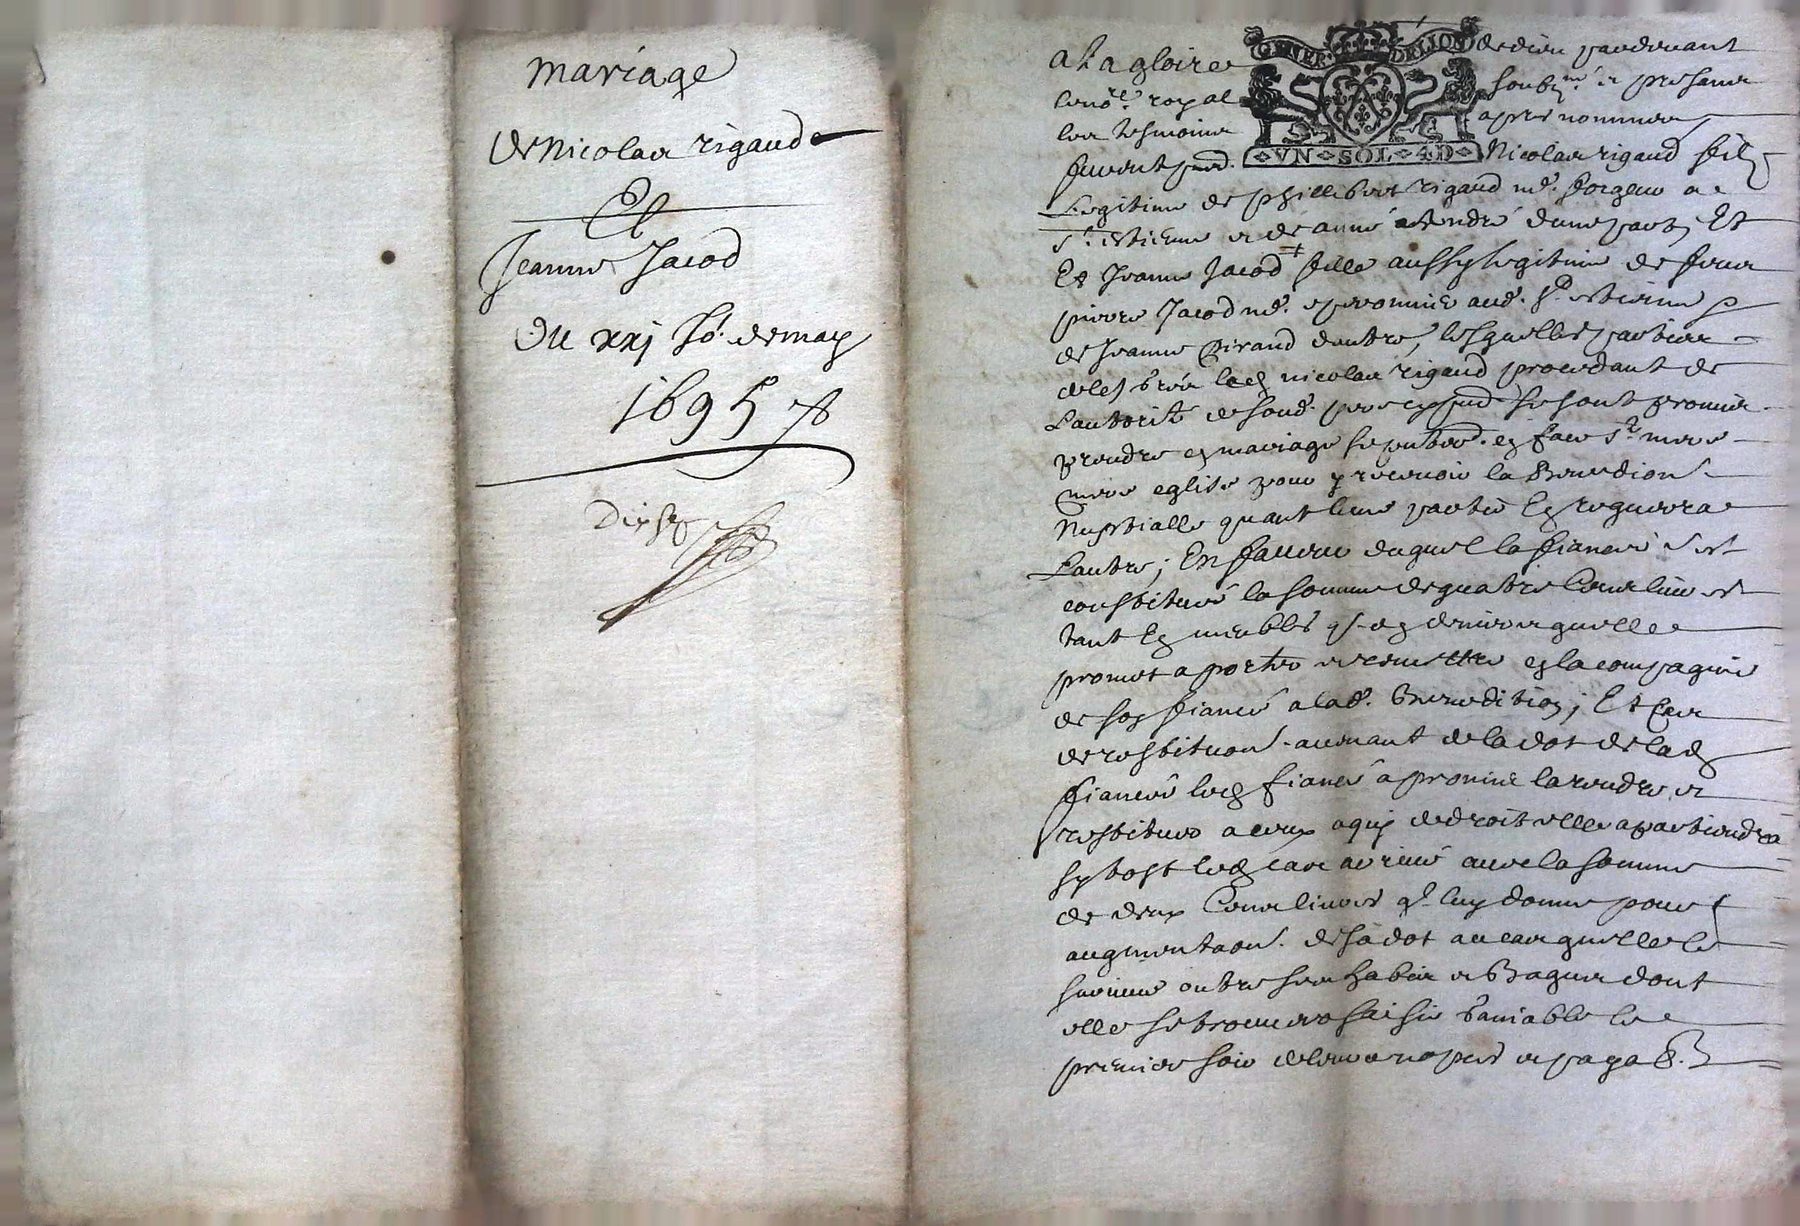 mariage
de Nicolas rigaud
Et
Jeanne Jacod
du xxj fe. de may
1695
a La gloire de dieu pardevant
le nore. royal soubzne. et presans
les tesmoins apres nommes
GENER. DE LION
VN SOL 4D
furent pnts. Nicolas rigaud fils
Legitime de phillibert rigaud md. a
St. estienne et de anne d'une part Et
Et Jeanne Jacod fille aussy legitime de feux
pierre Jacod md. aud. St. estienne
de Jeanne Giraud d'autre, lesquelles parties
de leur gré led nicolas rigaud procedant de
L'autorité de sond. pere cy pnt. se sont promis
prendre en mariage se pnter. en face ste. mere
eglise pour y recevoir la Benedion
Nuptialle quant l'une partie En requerra
L'autre; En faveur duquel la fiancée s'est
constitué la somme de quatre Cens livres
tant En meubles q. en deniers qu'elle
promet apporter et remettre en la compagnie
de son fiancé a lad. Benedition; Et Cas
de restituon. avenant de la dot de lad
fiancée led fiancé a promis la rendre et
restituer a ceux a qui de droit elle apartiendra
sytost led cas arrivé avec la somme
de deux Cens livres q. luy donne pour
augmentaon. de sa dot au cas qu'elle le
survive outre ses habits et Bagues dont
elle se trouvera saisie le
premier soit de leurs et